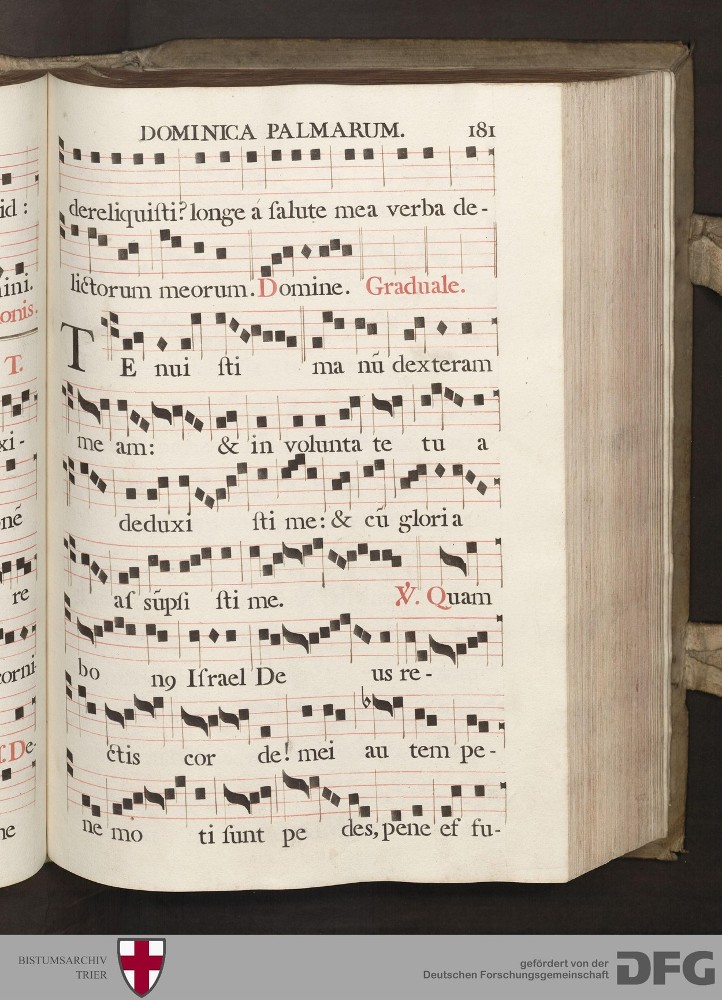 DOMINICA PALMARUM. 181
dereliquiſti? longe á ſalute mea verba de-
lictorum meorum. Domine. Graduale.
TE nui ſti ma nū dexteram
me am: & in volunta te tu a
deduxi ſti me: & cū gloria
aſ sūpſi ſti me. ℣. Quam
bo nꝰ Iſrael De us re-
ctis cor de! mei au tem pe-
ne mo ti ſunt pe des, pene eſ fu-
id:
ini.
onis.
T.
xi-
né
re
corni-
De-
ne
BISTUMSARCHIV
TRIER
gefördert von der
Deutschen Forschungsgemeinschaft
DFG